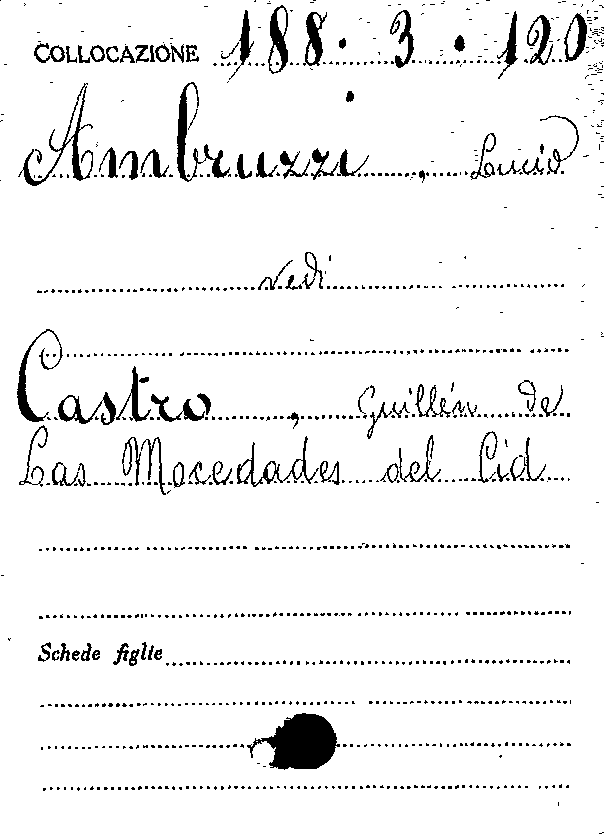 COLLOCAZIONE 188. 3. 120
Ambruzzi, Lucio
vedi
Castro, Guillén de
Las Mocedades del Cid
Schede figlie